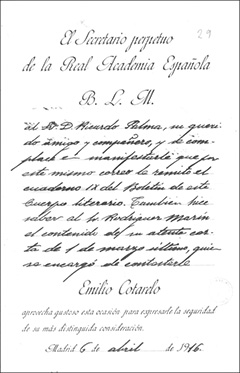 29
El Secretario perpetuo
de la Real Academia Española
B. L. M.
al Sr. D. Ricardo Palma, su queri-
do amigo y compañero, y se com-
place en manifestarle que por
este mismo correo le remite el
cuaderno IX del Boletín de este
Cuerpo literario. Tambien hice
saber al Sr. Rodríguez Marín
el contenido de su atenta car-
ta de 1 de marzo último, quien
se encargó de contestarle
Emilio Cotarelo
aprovecha gustoso esta ocasión para expresarle la seguridad
de su más distinguida consideración.
Madrid 6 de abril de 1916.